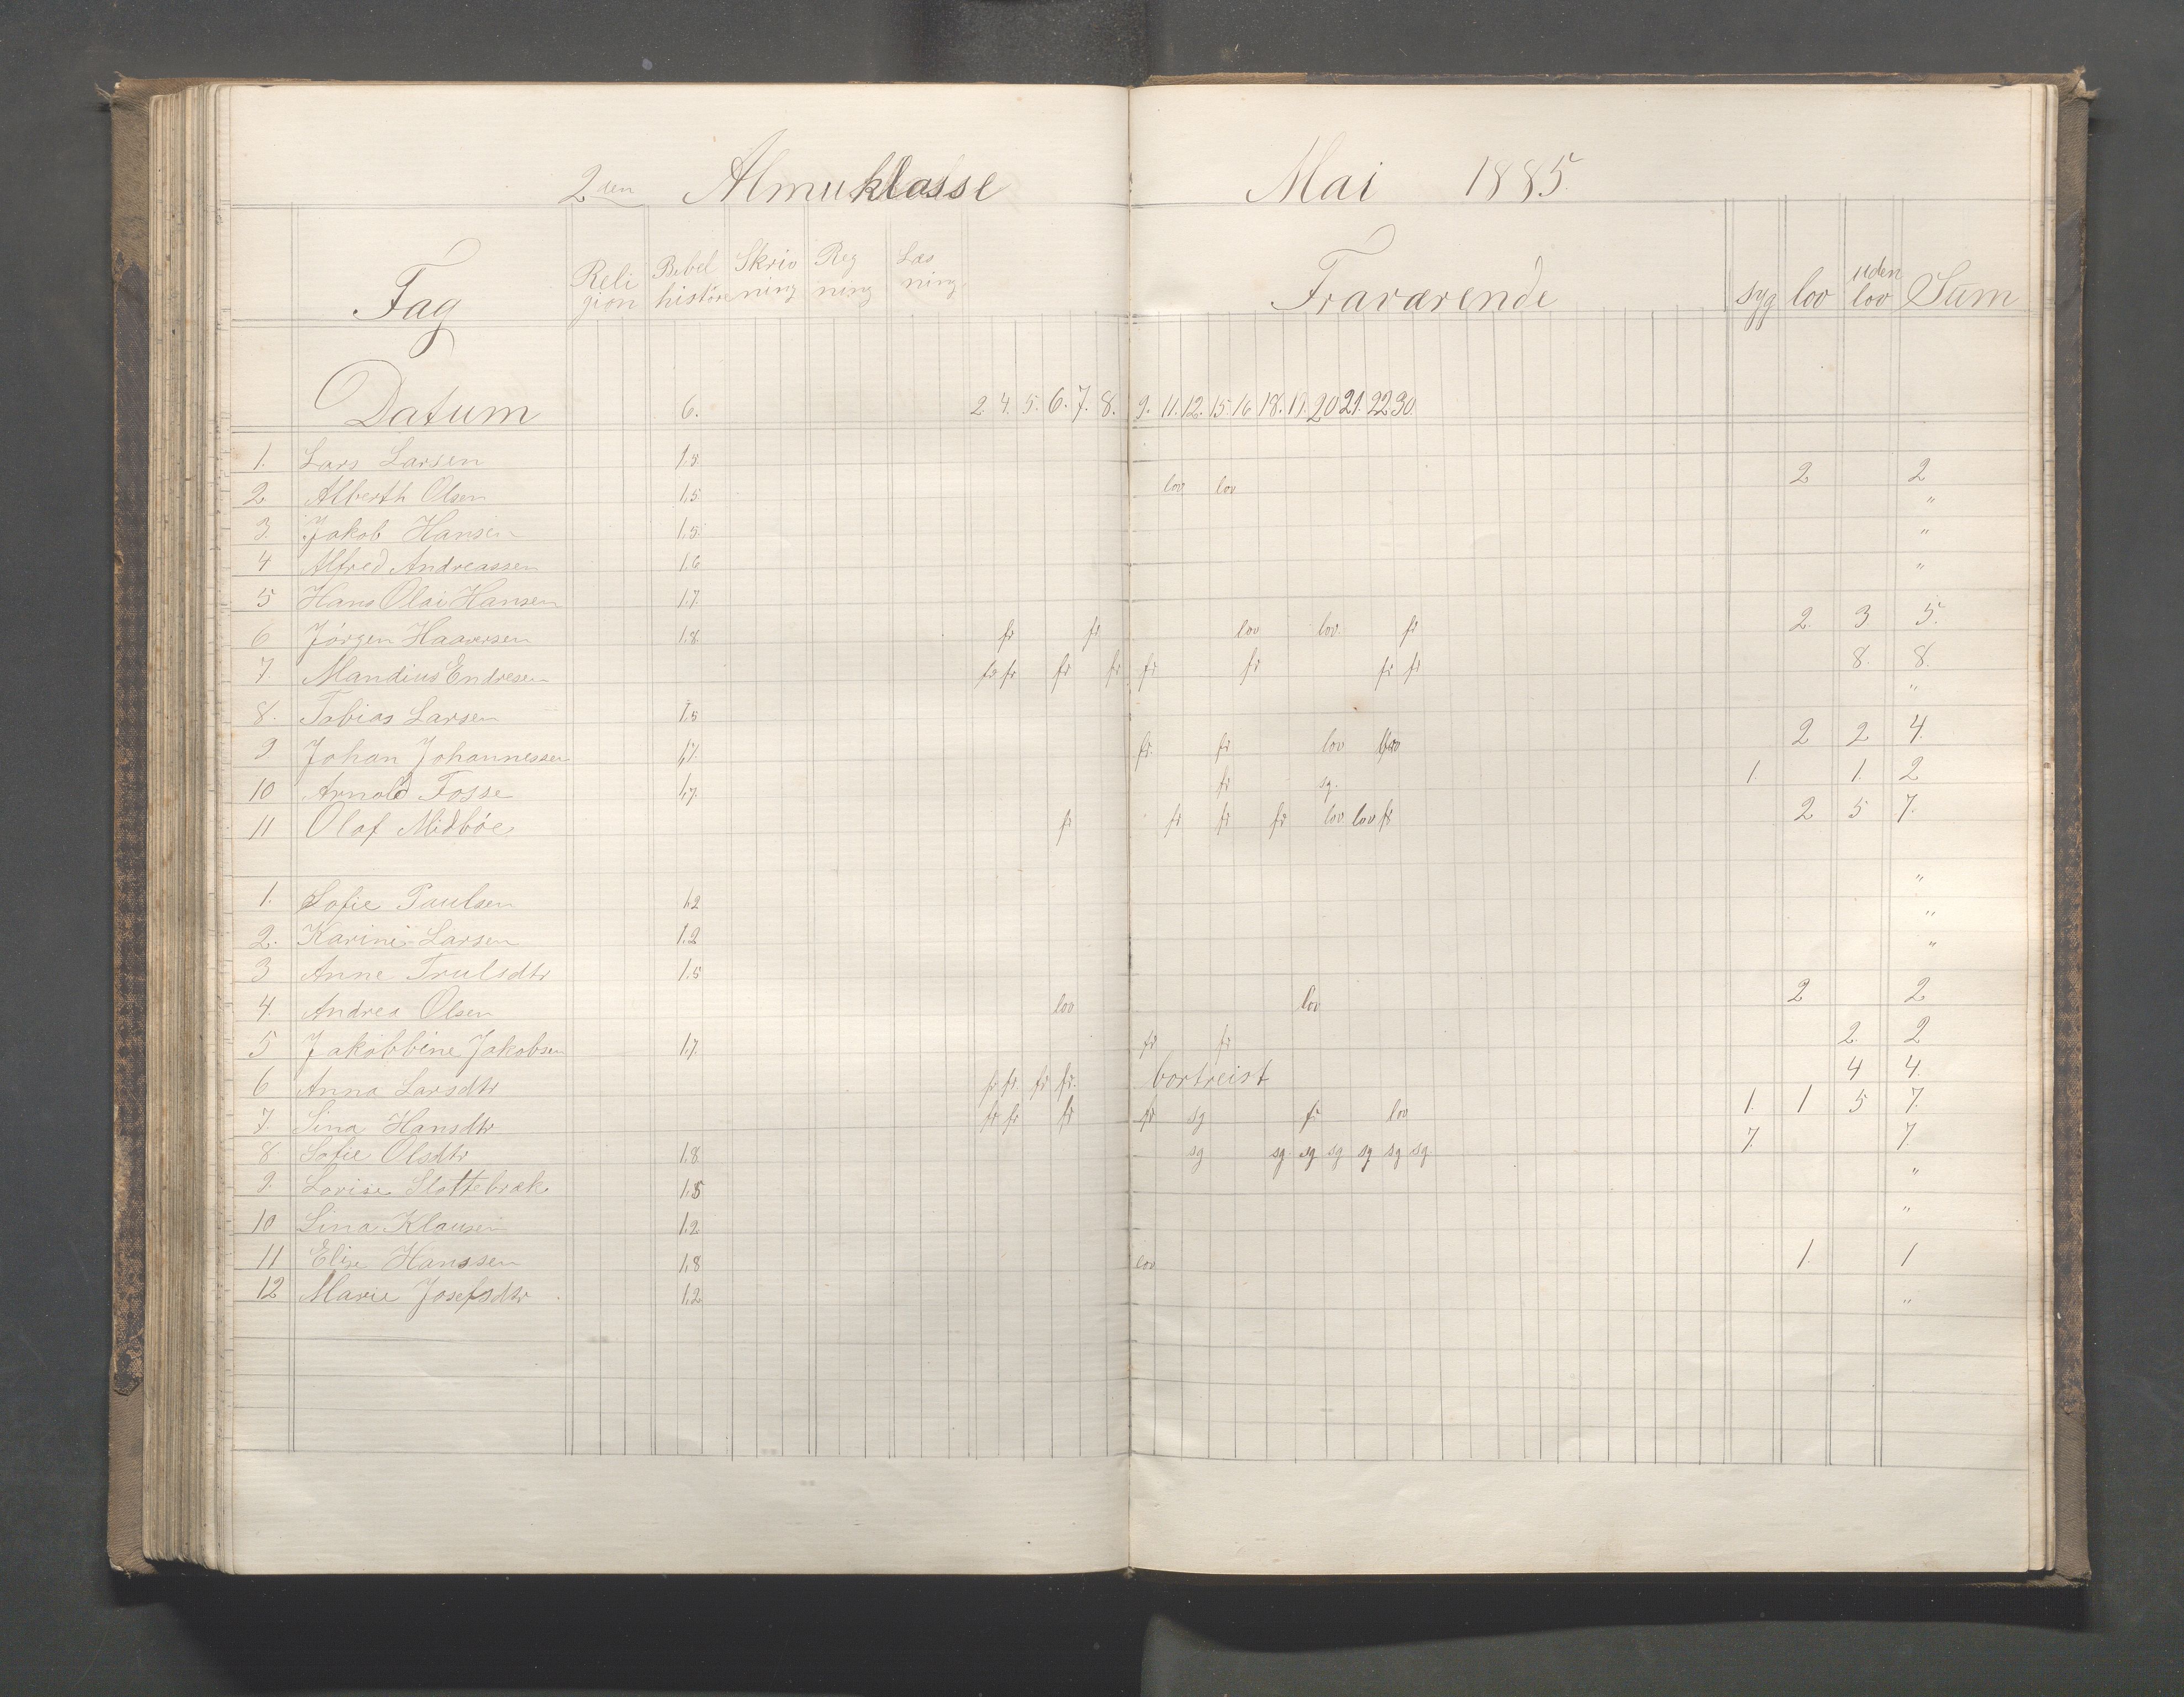 2den Almuklasse Mai 1885.
Fag Religion Bibelhistorie Skrivning Regning Læsning. Fraværende syg lov uden lov Sum
Datum 6. 2. 4. 5. 6. 7. 8. 9. 11. 12. 15. 16 18. 19. 20 21. 22 30.
1. Lars Larsen 1.5
2 Alberth Olsen 1.5 lov lov 2 2
3. Jakob Hansen 1.5 "
4 Alfred Andreassen 1.6 "
5 Hans Olai Hansen 1.7. "
6 Jörgen Haaversen 1.8. fr fr lov lov. fr 2. 3 5.
7. Mandius Endresen fr fr fr fr fr fr fr fr 8. 8.
8. Tobias Larsen 1.5 "
9 Johan Johannessen 1.7. fr. fr lov lov 2 2 4.
10 Arnold Fosse 1.7. fr sg. 1. 1. 2
11 Olaf Midböe fr fr fr fr lov lov fr 2 5 7.
1. Sofie Paulsen 1.2 "
2. Karine Larsen 1.2 "
3 Anne Trulsdtr 1.5 "
4. Andrea Olsen lov lov 2 2
5 Jakobbine Jakobsen 1.7. fr fr 2. 2
6 Anna Larsdtr fr fr. fr fr. bortreist 4 4.
7. Sina Hansdtr fr fr fr fr sg fr lov 1. 1 5 7.
8 Sofie Olsdtr 1.8 sg sg sg sg sg sg sg. 7. 7.
9. Lovise Slottebrak 1.5 "
10 Lina Klausen 1.2. "
11 Elise Hanssen 1.8 lov 1. 1
12 Marie Josefsdtr 1.2 "